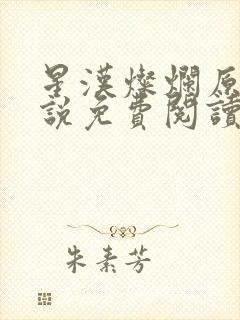 星漢燦爛原
說免費閱讀
朱素芳